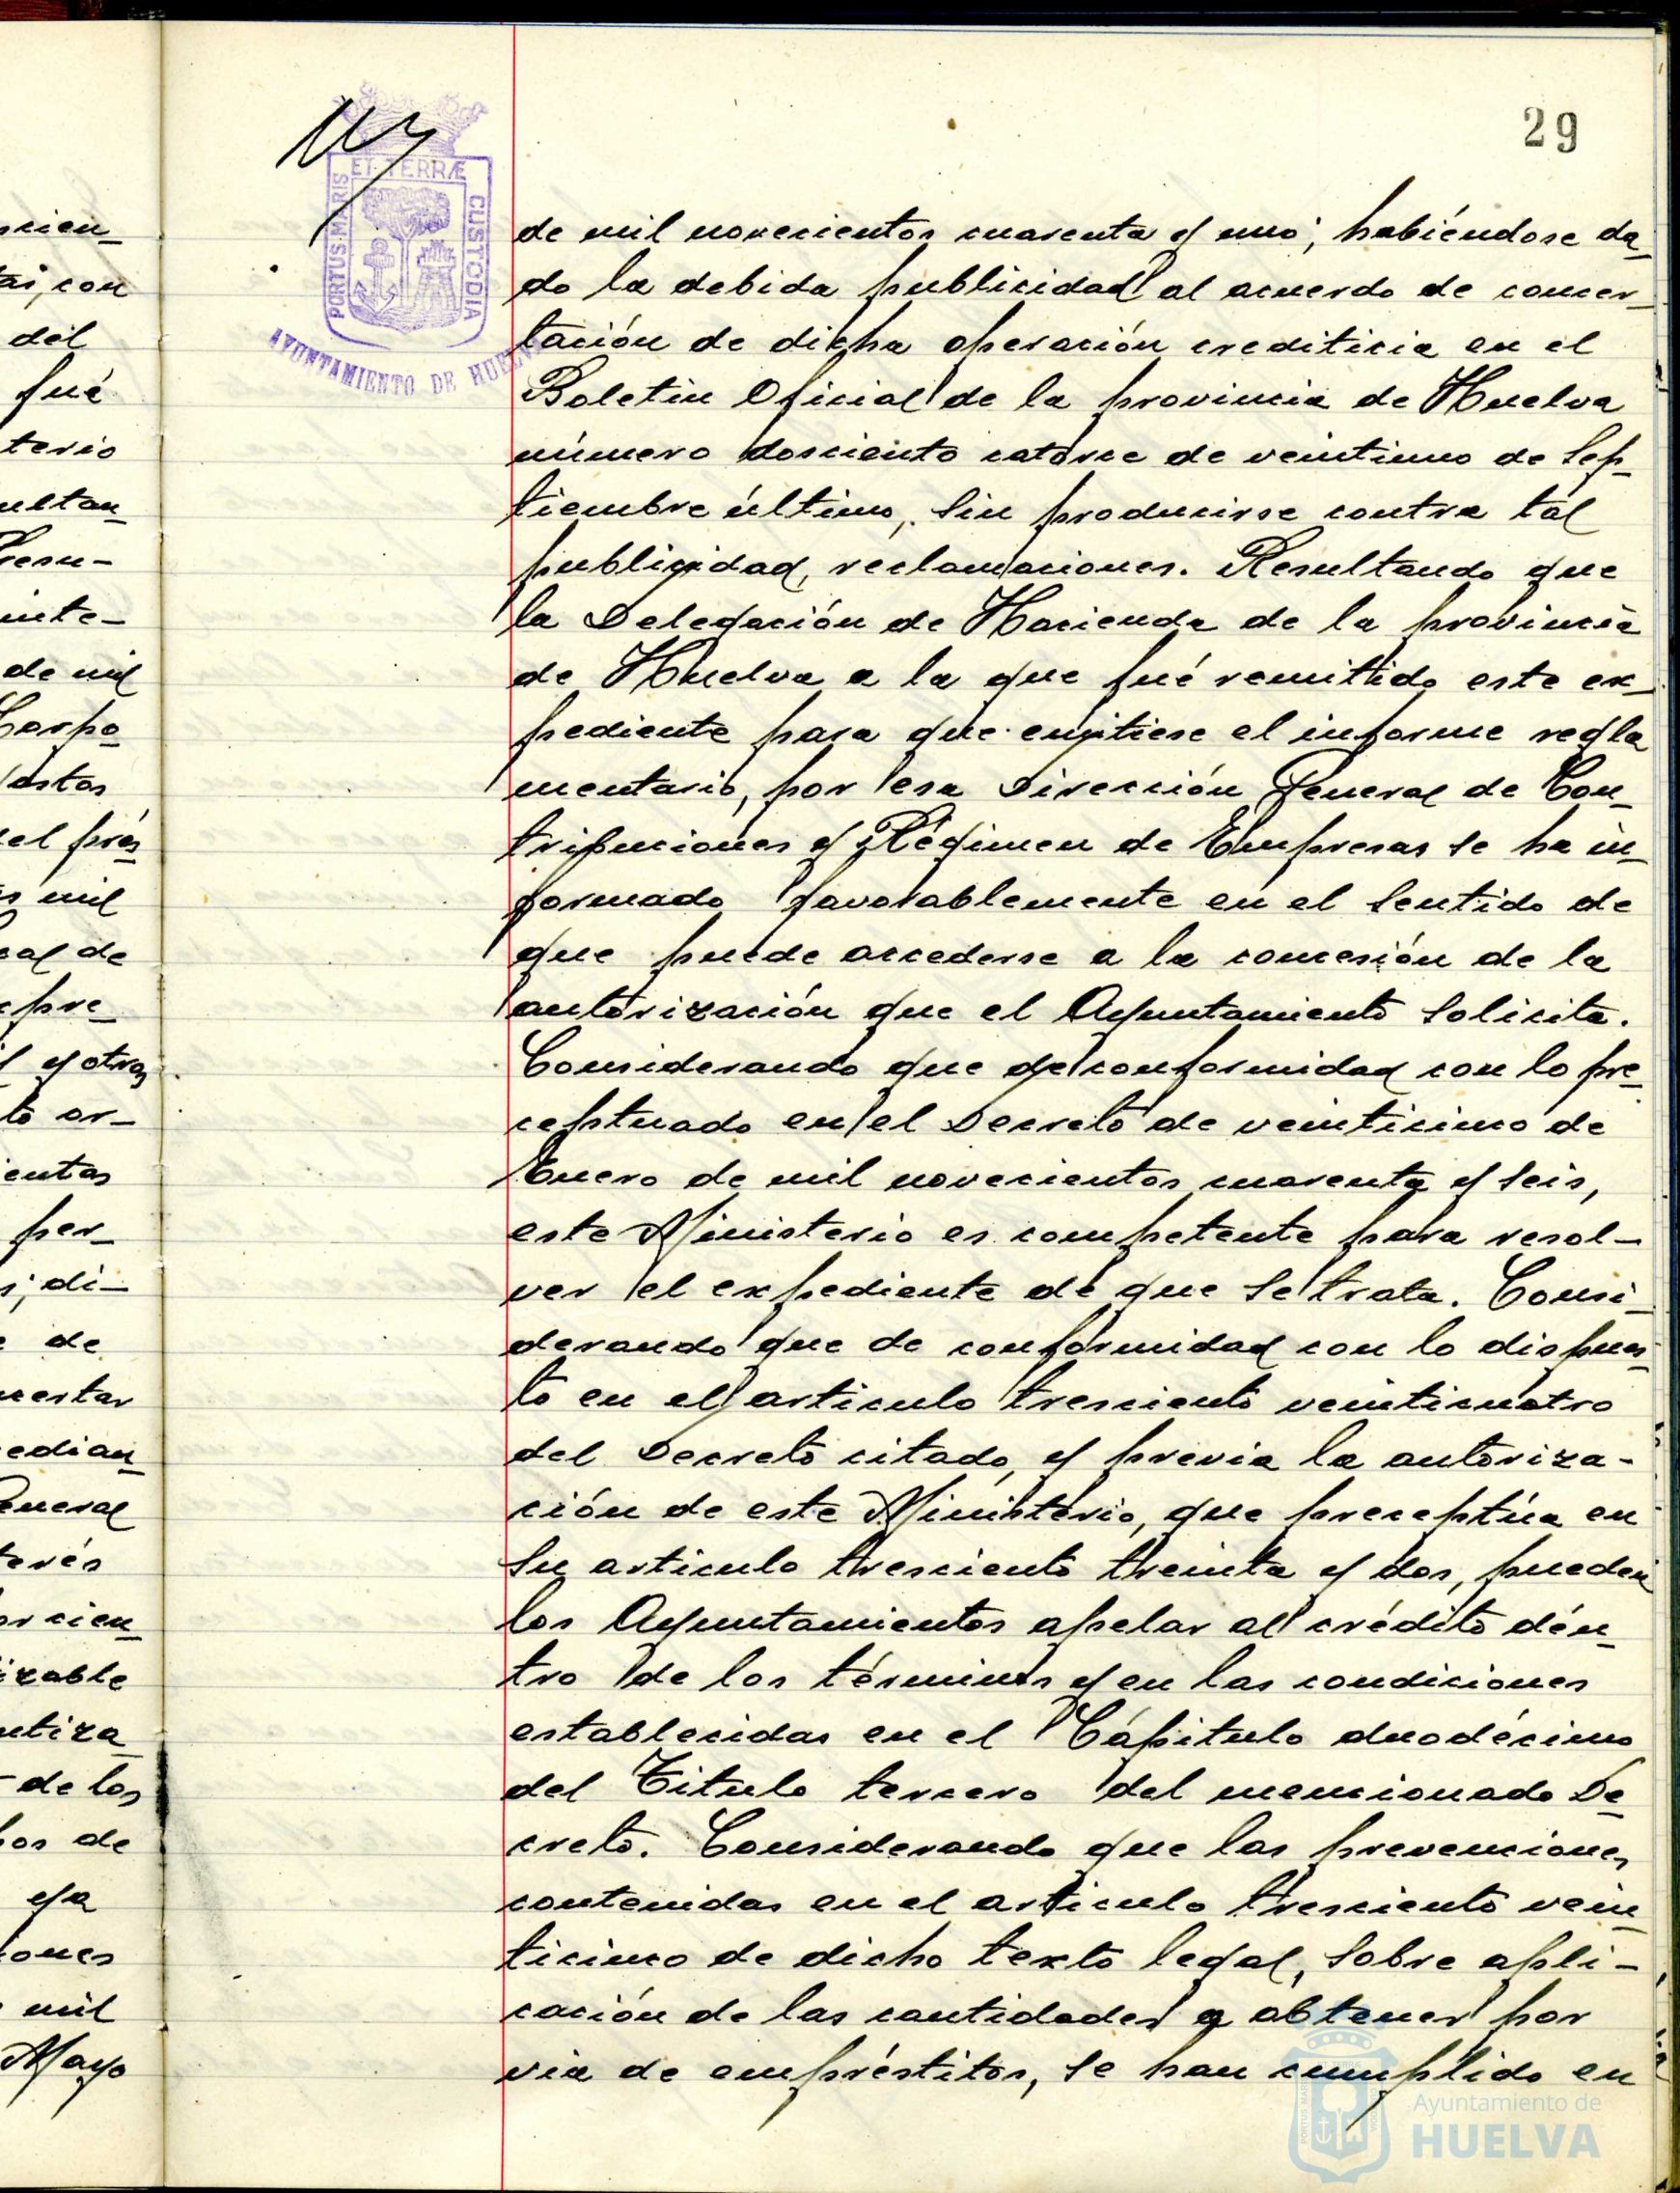 29
ET TERRÆ
PORTUS MARIS
CUSTODIA
AYUNTAMIENTO DE HUELVA
de mil novecientos cuarenta y uno; habiéndose da_
do la debida publicidad al acuerdo de concer_
tación de dicha operación crediticia en el
Boletin Oficial de la provincia de Huelva
número dosciento catorce de veintiuno de Sep_
tiembre último, sin producirse contra tal
publicidad, reclamaciones. Resultando que
la Delegación de Hacienda de la provincia
de Huelva a la que fué remitido este ex_
pediente para que emitiese el informe regla
mentario, por esa Dirección General de Con_
tribuciones y Régimen de Empresas se ha in_
formado favorablemente en el sentido de
que puede accederse a la concesión de la
autorización que el Ayuntamiento solicita.
Considerando que de conformidad con lo pre_
ceptuado en el Decreto de veinticinco de
Enero de mil novecientos cuarenta y seis,
este Ministerio es competente para resol-
ver el expediente de que se trata. Consi_
derando que de conformidad con lo dispues_
to en el articulo tresciento veinticuatro
del Decreto citado, y previa la autoriza-
ción de este Ministerio, que preceptúa en
su articulo tresciento treinta y dos, pueden
los Ayuntamientos apelar al crédito den_
tro de los términos y en las condiciones
establecidas en el Capitulo duodécimo
del Titulo tercero del mencionado De_
creto. Considerando que las prevenciones
contenidas en el articulo tresciento vein_
ticinco de dicho texto legal, sobre apli-
cación de las cantidades a obtener por
via de empréstitos, se han cumplido en
cien_
con
del
fué
terio
ultan_
Resu-
de mil
Corpo_
mil
de
y otros
entas
per_
di-
de
edian_
General
terés
cien_
izable
de los
de
ya
mil
Mayo
Ayuntamiento de
HUELVA